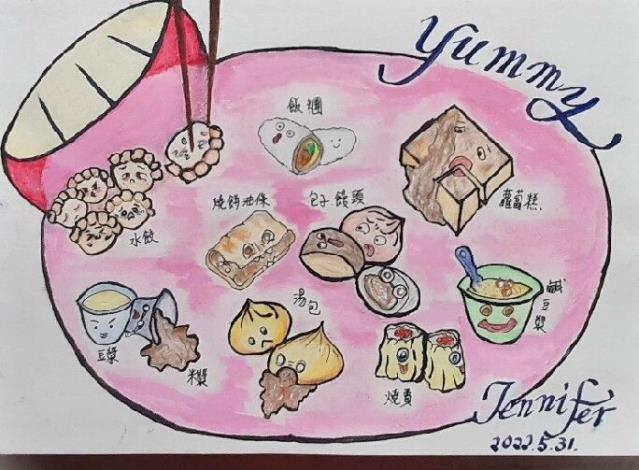 Yummy
飯糰
燒餅油條
包子.饅頭
蘿蔔糕
水餃
湯包
鹹豆漿
豆漿
米漿
燒賣
Jennifer
2022.5.31.